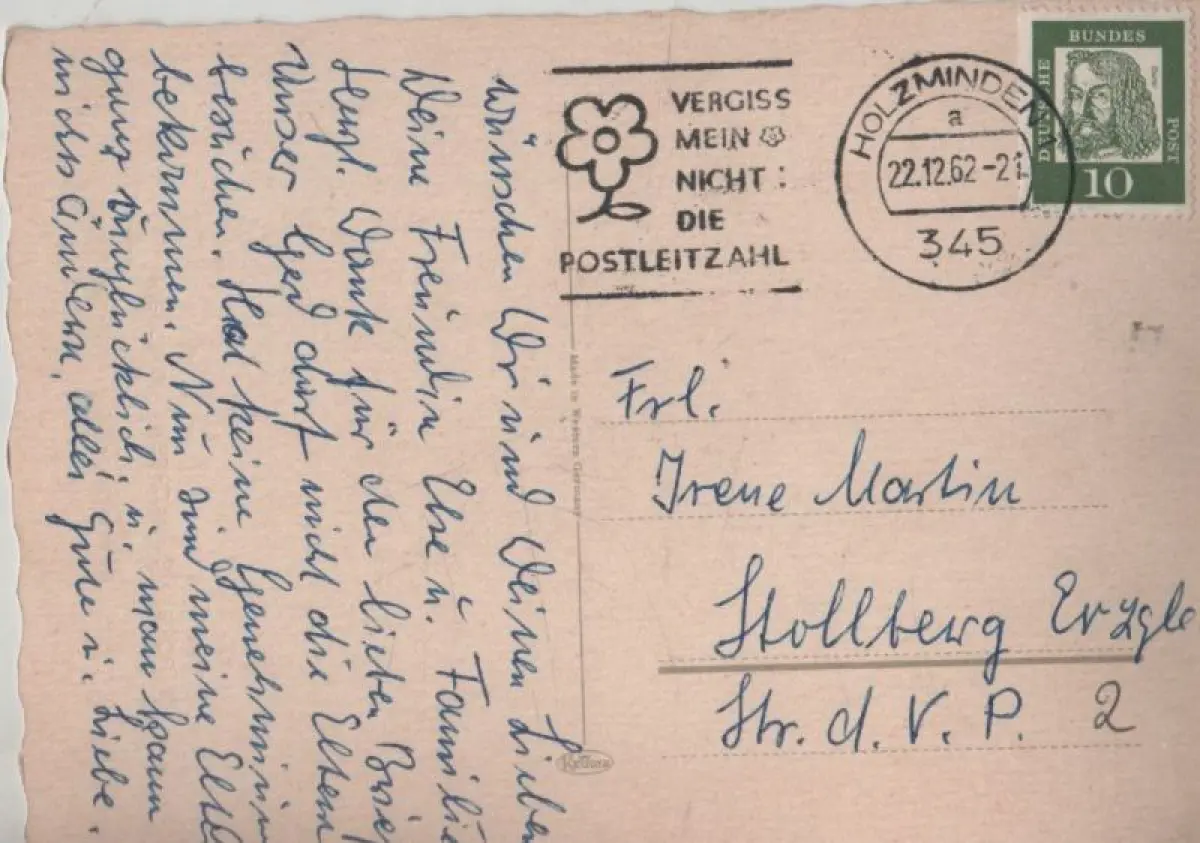 wünschen Wir und Deinen Lieben
Deine Freundin Else u. Familie
Herzl. Dank für den lieben Brief
Unser Gerd darf nicht die Eltern
besuchen. Hat keine Genehmigun
bekommen. Nun sind meine Elte
genug unglücklich, u. man kann
nichts ändern, alles Gute u. Liebe.
VERGISS
MEIN
NICHT:
DIE
POSTLEITZAHL
HOLZMINDEN
a
22.12.62-21
345
DEUTSCHE BUNDES POST
Dürer
10
Made in Western Germany
Frl.
Irene Martin
Stollberg Erzgb
Str. d. V. P. 2